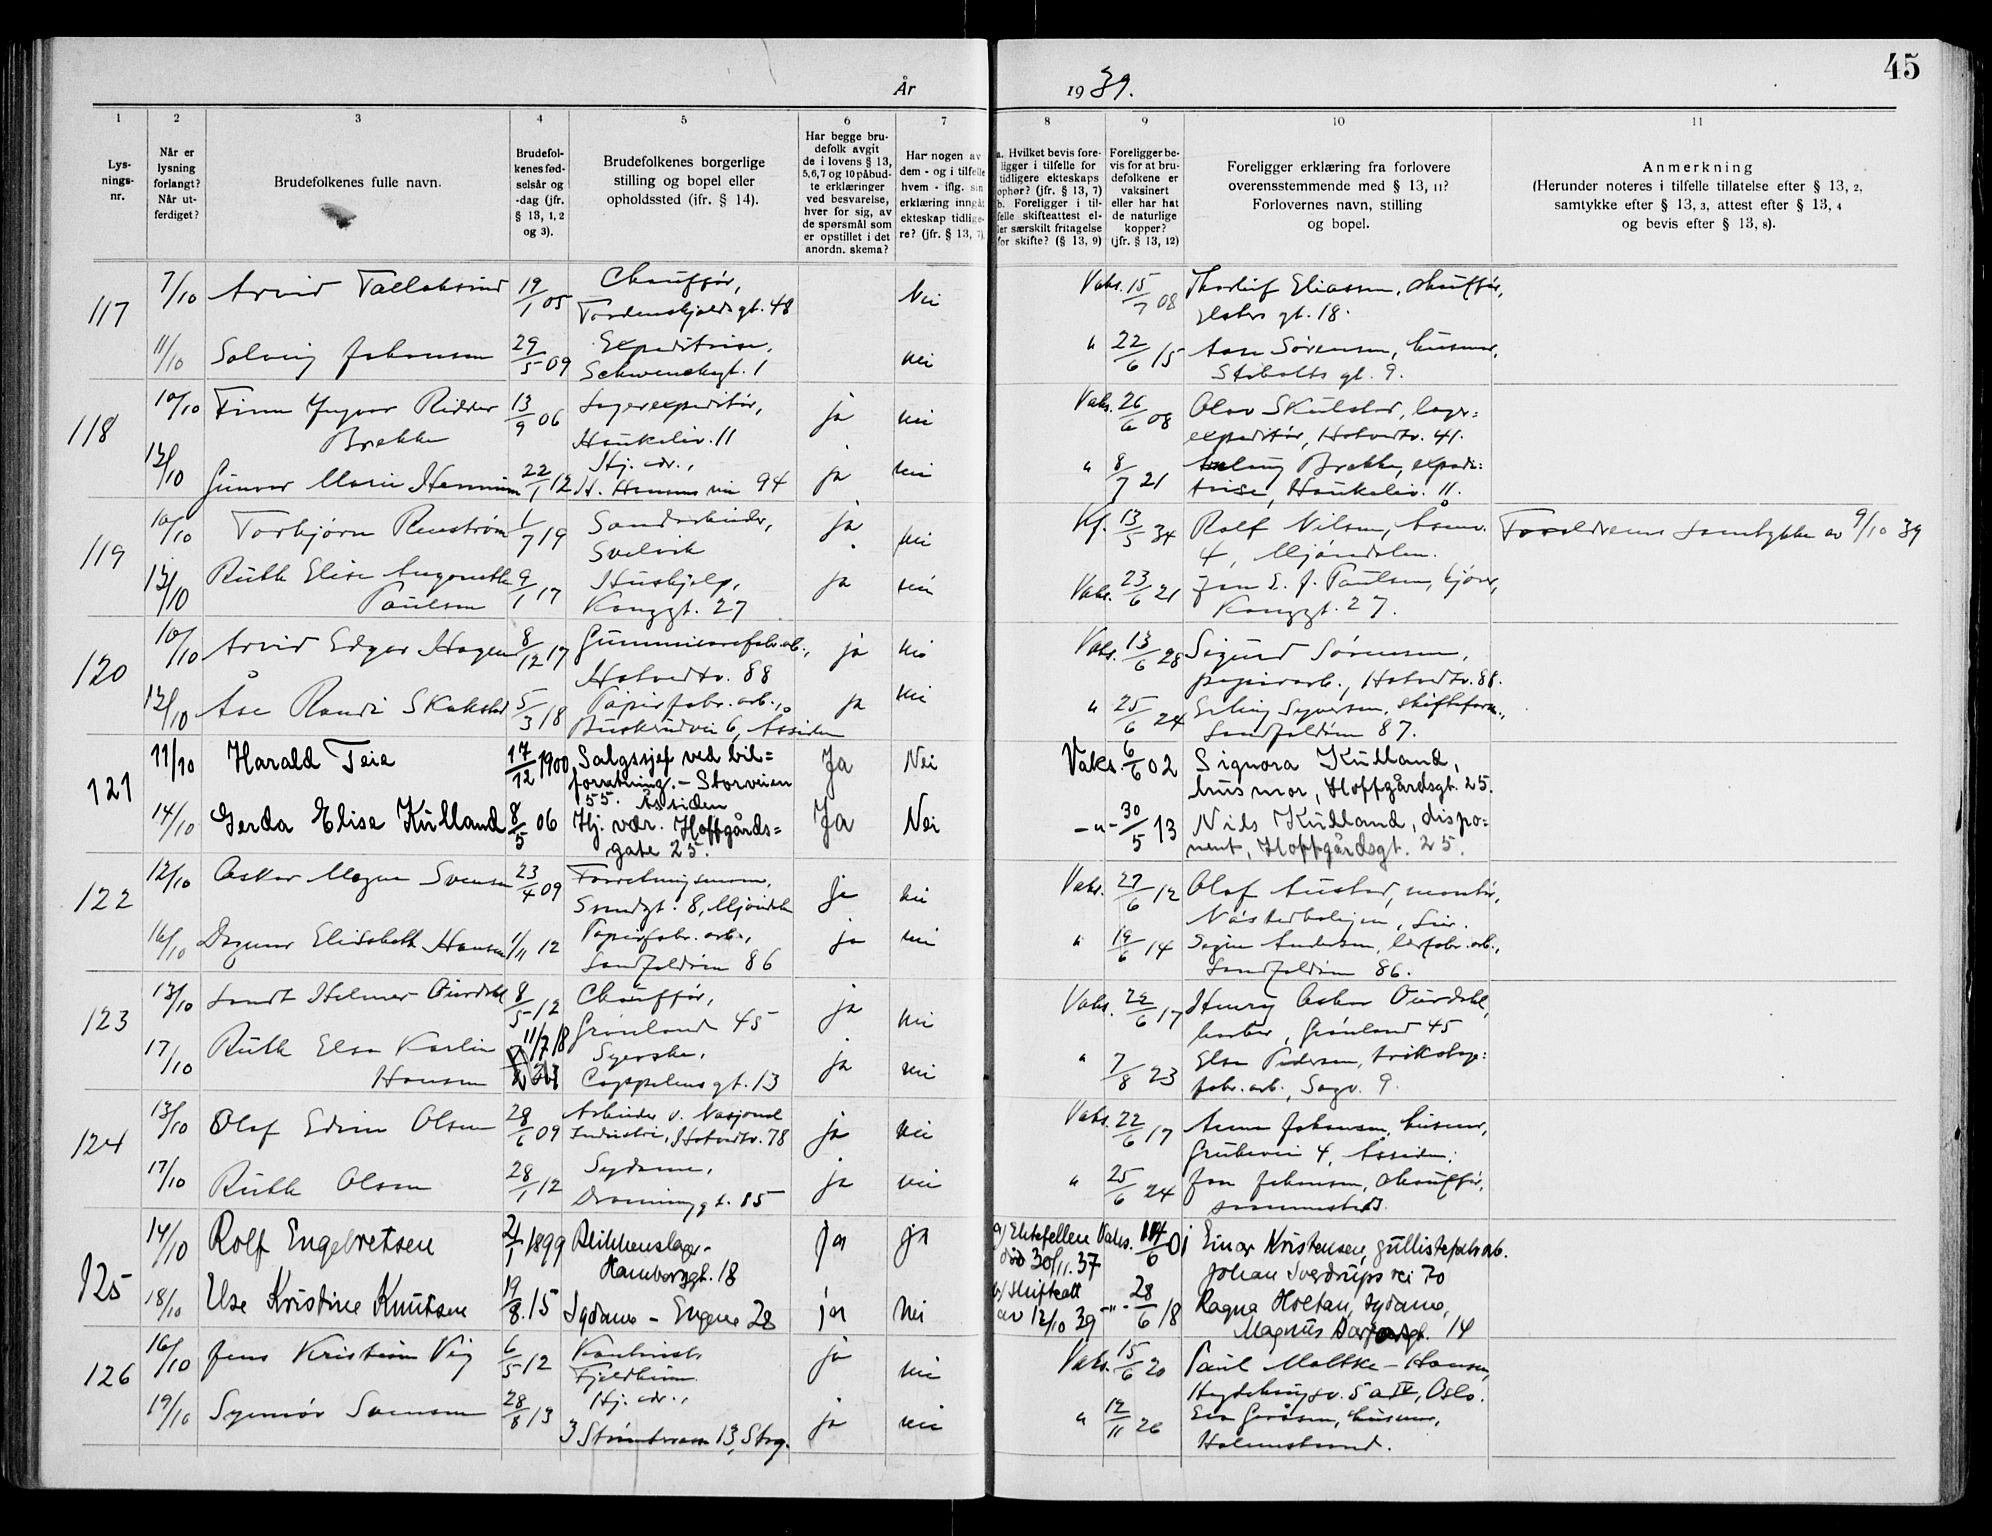 45
År 1939.
1 2 3 4 5 6 7 8 9 10 11
Lys-
nings-
nr.
Når er
lysning
forlangt?
Når ut-
ferdiget?
Brudefolkenes fulle navn.
Brudefol-
kenes fød-
selsår og
-dag (jfr.
§ 13, 1, 2
og 3).
Brudefolkenes borgerlige
stilling og bopel eller
opholdssted (jfr. § 14).
Har begge bru-
defolk avgit
de i lovens § 13,
5, 6, 7 og 10 påbud-
te erklæringer
ved besvarelse,
hver for sig, av
de spørsmål som
er opstillet i det
anordn. skema?
Har nogen av
dem - og i tilfelle
hvem - iflg. sin
erklæring inngåt
ekteskap tidlige-
re? (jfr. § 13, 7)
a. Hvilket bevis fore-
ligger i tilfelle for
tidligere ekteskaps
ophør? (jfr. § 13, 7)
b. Foreligger i til-
felle skifteattest el-
ler særskilt fritagelse
for skifte? (§ 13, 9)
Foreligger be-
vis for at bru-
defolkene er
vaksinert
eller har hat
de naturlige
kopper?
(jfr. § 13, 12)
Foreligger erklæring fra forlovere
overensstemmende med § 13, 11?
Forlovernes navn, stilling
og bopel.
Anmerkning
(Herunder noteres i tilfelle tillatelse efter § 13, 2,
samtykke efter § 13, 3, attest efter § 13, 4
og bevis efter § 13, 8).
117 7/10 Arvid Tallaksrud 19/1 05 Chauffør, Nei Vaks. 15/7 08 Thorleif Eliassen, chauffør,
Tordenskjolds gt. 48 gt. 18.
11/10 Solveig Johansen 29/5 09 Expeditrise, nei " 22/6 15 Aase Sørensen, husmor,
Schwenckegt. 1 Stibolts gt. 9.
118 10/10 Finn Yngvar Ridder 13/9 06 Lagerexpeditør, ja nei Vaks. 26/6 08 Olav Skulstad, lager=
Brekke Haukeliv. 11 expeditør, Hotvedtv. 41.
12/10 Gunvor Marie 22/1 12 Hj. vær., ja nei " 8/7 21 Brekke, expedi=
H. Hansens vei 94 trise, Haukeliv. 11.
119 10/10 Torbjørn Renstrøm 1/7 19 Sandarbeider, ja nei Kf. 13/5 34 Rolf Nilsen, Åsenv. Foreldrenes samtykke av 9/10 39
Svelvik 4, Mjøndalen.
12/10 Ruth Elise Augonette 9/1 17 Hushjelp, ja nei Vaks. 23/6 21 Jon E. J. Paulsen, kjører,
Paulsen Konggt. 27 Konggt. 27.
120 10/10 Arvid Edgar Hagen 8/12 17 Gummivarefabr.arb., ja nei Vaks. 13/6 28 Sigurd Sørensen,
Hotvedtv. 88 papirarb., Hotvedtv. 88.
12/10 Åse Randi Skakstad 5/3 18 Papirfabr. arb., ja nei " 25/6 24 Erling Syversen, skifteform.,
Buskerudvei 6, Åssiden Landfaldøen 87.
121 11/10 Harald Teie 17/12 1900 Salgssjef ved bil= Ja Nei Vaks. 6/6 02 Signora Kulland,
forretning. - Storveien husmor, Hoffgårdsgt. 25.
55. Åssiden
14/10 Gerda Elise Kulland 8/5 06 Hj. vær. Hoffgårds= Ja Nei -"- 30/5 13 Nils Kulland, dispo=
gate 25. nent, Hoffgårdsgt. 25.
122 12/10 Oskar Magne Svensen 23/4 09 Forretningsmann, ja nei Vaks. 27/6 12 Olaf Austad, montør,
Strandgt. 8, Mjøndalen Lier.
16/10 Dagmar Elisabeth Hansen 1/11 12 Papirfabr. arb., ja nei " 19/6 14 Andersen, lærfabr. arb.,
Landfaldøen 86 Landfaldøen 86.
123 13/10 Helmer Aurdal 8/5 12 Chauffør, ja nei Vaks. 22/6 17 Henry Oskar Aurdal,
Grønland 45 Grønland 45
17/10 Ruth Elsa Karlin 11/7 18 Syerske, ja nei " 7/8 23 Elsa Pedersen, trikotasje=
Hansen Cappelens gt. 13 fabr. arb., Sagv. 9.
124 13/10 Olaf Edvin Olsen 28/6 09 Arbeider v. Nasjonal ja nei Vaks. 22/6 17 Anna Johansen, husmor,
Industri, Hotvedtv. 78 Grubevei 4, Åssiden.
17/10 Ruth Olsen 28/1 12 Sydame, ja nei " 25/6 24 Jon Johansen, chauffør,
Dronninggt. 85 sammesteds.
125 14/10 Rolf Engebretsen 21/1 1899 Blikkenslager- ja ja a) Ektefellen død 30/11. 37 Vaks. 14/6 01 Einar Kristensen, gullistefabr.arb.
Hamborggt. 18 Johan Sverdrups vei 70
18/10 Else Kristine Knutsen 19/8. 15 Sydame - Engene 28 ja nei b) Skifteatt av 12/10 39 -"- 28/6 18 Ragna Holtan, sydame,
Magnus gt. 14
126 16/10 Jens Kristian Vig 6/5 12 Kontorist ja nei Vaks. 15/6 20 Paul Moltke-Hansen,
Fjeldheim. 5 a IV, Oslo.
19/10 Synnøv Svensen 28/8 13 Hj. vær., ja nei " 12/11 26 husmor,
13, Strg. Holmestrand.